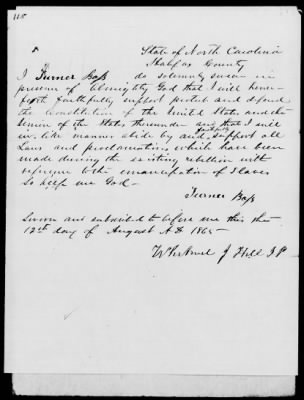 State of North Carolina
Halifax County
I Turner Bass do solemnly swear in
presence of Almighty God that I will hence-
forth faithfully support protect and defend
the Constitution of the United States and the
Union of the States thereunder and that I will
in like manner abide by and faithfully support all
Laws and proclamations which have been
made during the existing rebellion with
reference to the emancipation of Slaves
So help me God—
Turner Bass
Sworn and subscribed to before me this the
12th day of August A D 1865
J Hill J P